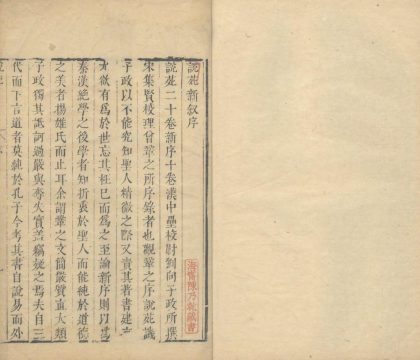 說苑新敘序
說苑二十卷新序十卷漢中壘校尉劉向子政所撰
宋集賢校理曾鞏之所序錄者也觀鞏之序說苑譏
子政以不能究知聖人精微之際又責其著書建
尤欲有為於世忘其枉己而為之至論新序則以為
秦漢絕學之後學者知折衷於聖人而能純於道德
之美者揚雄氏而止耳余謂鞏之文簡嚴質直大類
子政獨其詆訶過嚴與奪失實蓋竊疑之焉夫自三
代而下言道者莫純於孔子今考其書自說易而外
海寧陳乃乾藏書